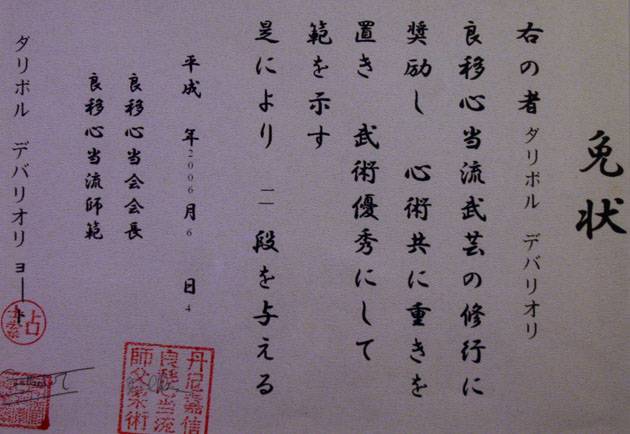 免状
右の者 ダリボル デバリオリ
良移心当流武芸の修行に
奨励し 心術共に重きを
置き 武術優秀にして
範を示す
是により 二段を与える
平成 年2006月6 日4
良移心当会会長
良移心当流師範
ダリボル デバリオリ ヨー
丹尼嘉信
良移心当流
師父家术術